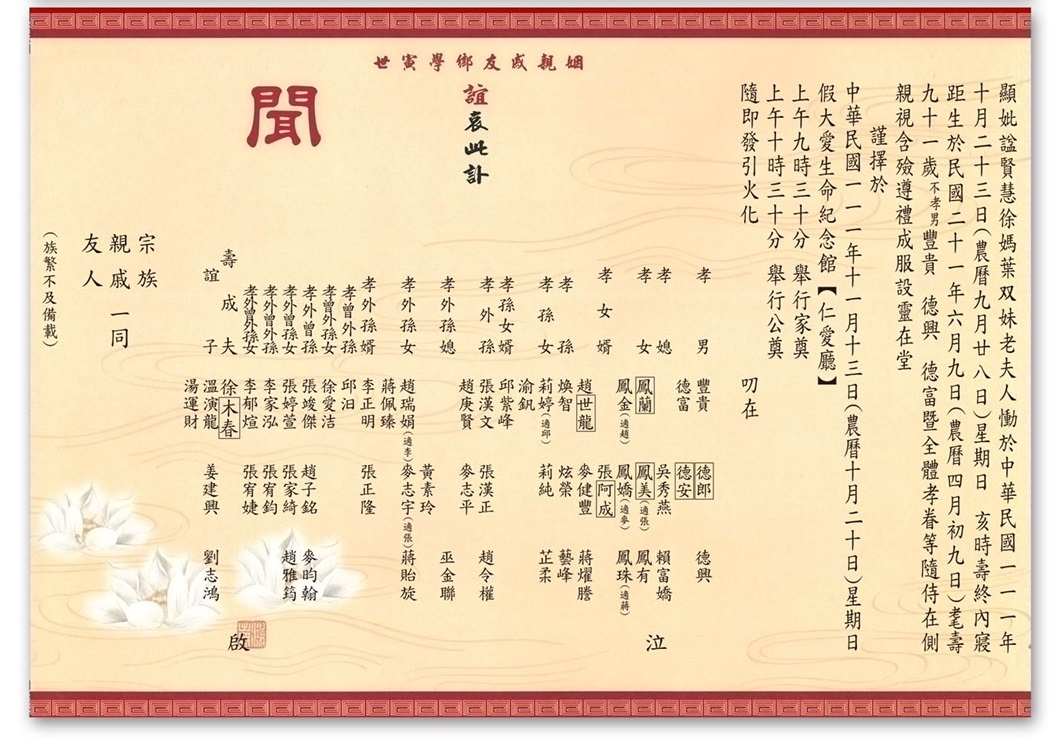 顯妣諡賢慧徐媽葉双妹老夫人慟於中華民國一一一年
十月二十三日(農曆九月廿八日)星期日 亥時壽終內寢
距生於民國二十一年六月九日(農曆四月初九日)耄壽
九十一歲不孝男豐貴 德興 德富暨全體孝眷等隨侍在側
親視含殮遵禮成服設靈在堂
謹擇於
中華民國一一一年十一月十三日(農曆十月二十日)星期日
假大愛生命紀念館【仁愛廳】
上午九時三十分 舉行家奠
上午十時三十分 舉行公奠
隨即發引火化
叨在
姻親戚友鄉學寅世
誼哀此訃
聞
孝男 豐貴 德郎 德興
德富 德安
孝媳 吳秀燕 賴富嬌
孝女 鳳蘭 鳳美(適張) 鳳有
鳳金(適趙) 鳳嬌(適麥) 鳳珠(適蔣)
孝女婿 趙世龍 張阿成
麥健豐 蔣耀謄
孝孫 煥智 炫榮 藝峰
孝孫女 莉婷(適邱) 莉純 芷柔
渝釩
孝孫女婿 邱紫峰
孝外孫 張漢文 張漢正 趙令權
趙庚賢 麥志平
孝外孫媳 黃素玲 巫金聯
孝外孫女 趙瑞娟(適李) 麥志宇(適張) 蔣貽旋
蔣佩臻
孝外孫婿 李正明 張正隆
孝曾外孫 邱汨
孝外曾孫 徐愛洁
張竣傑 趙子銘 麥昀翰
孝外曾孫女 張婷萱 張家綺 趙雅筠
孝外曾外孫 李家泓 張宥鈞
孝外曾外孫女 李郁煊 張宥婕
壽成夫 徐木春
誼子 溫演龍 姜建興 劉志鴻
湯運財
泣
啟
宗族
親戚一同
友人
(族繁不及備載)